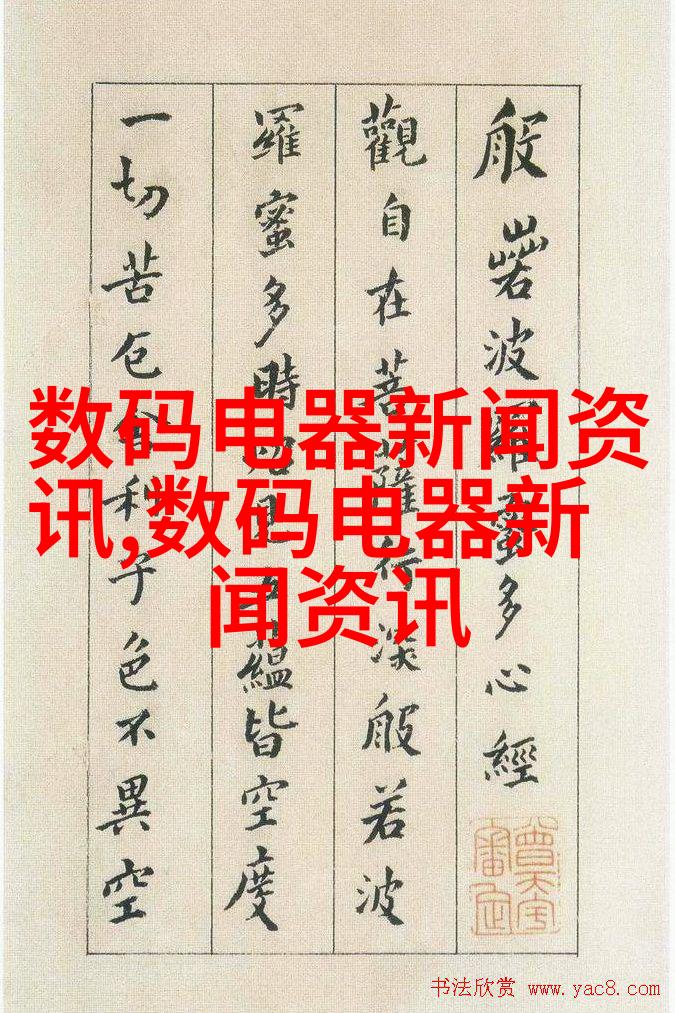 般若波羅蜜多心經
觀自在菩薩行深般若波
羅蜜多時照見五蘊皆空度
一切苦厄舍利子色不異空
数码电器新闻资
讯,数码电器新
闻资讯
书法欣赏 www.yac8.com